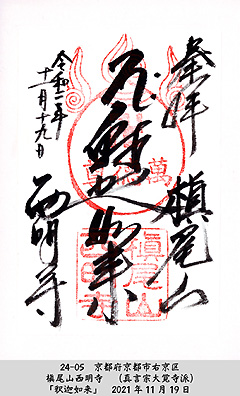 奉拝
槇尾山
釈迦如来
西明寺
令和三年
十一月十九日
槇尾山
西明寺
24-05 京都府京都市右京区
槇尾山西明寺 (真言宗大覚寺派)
「釈迦如来」 2021年11月19日